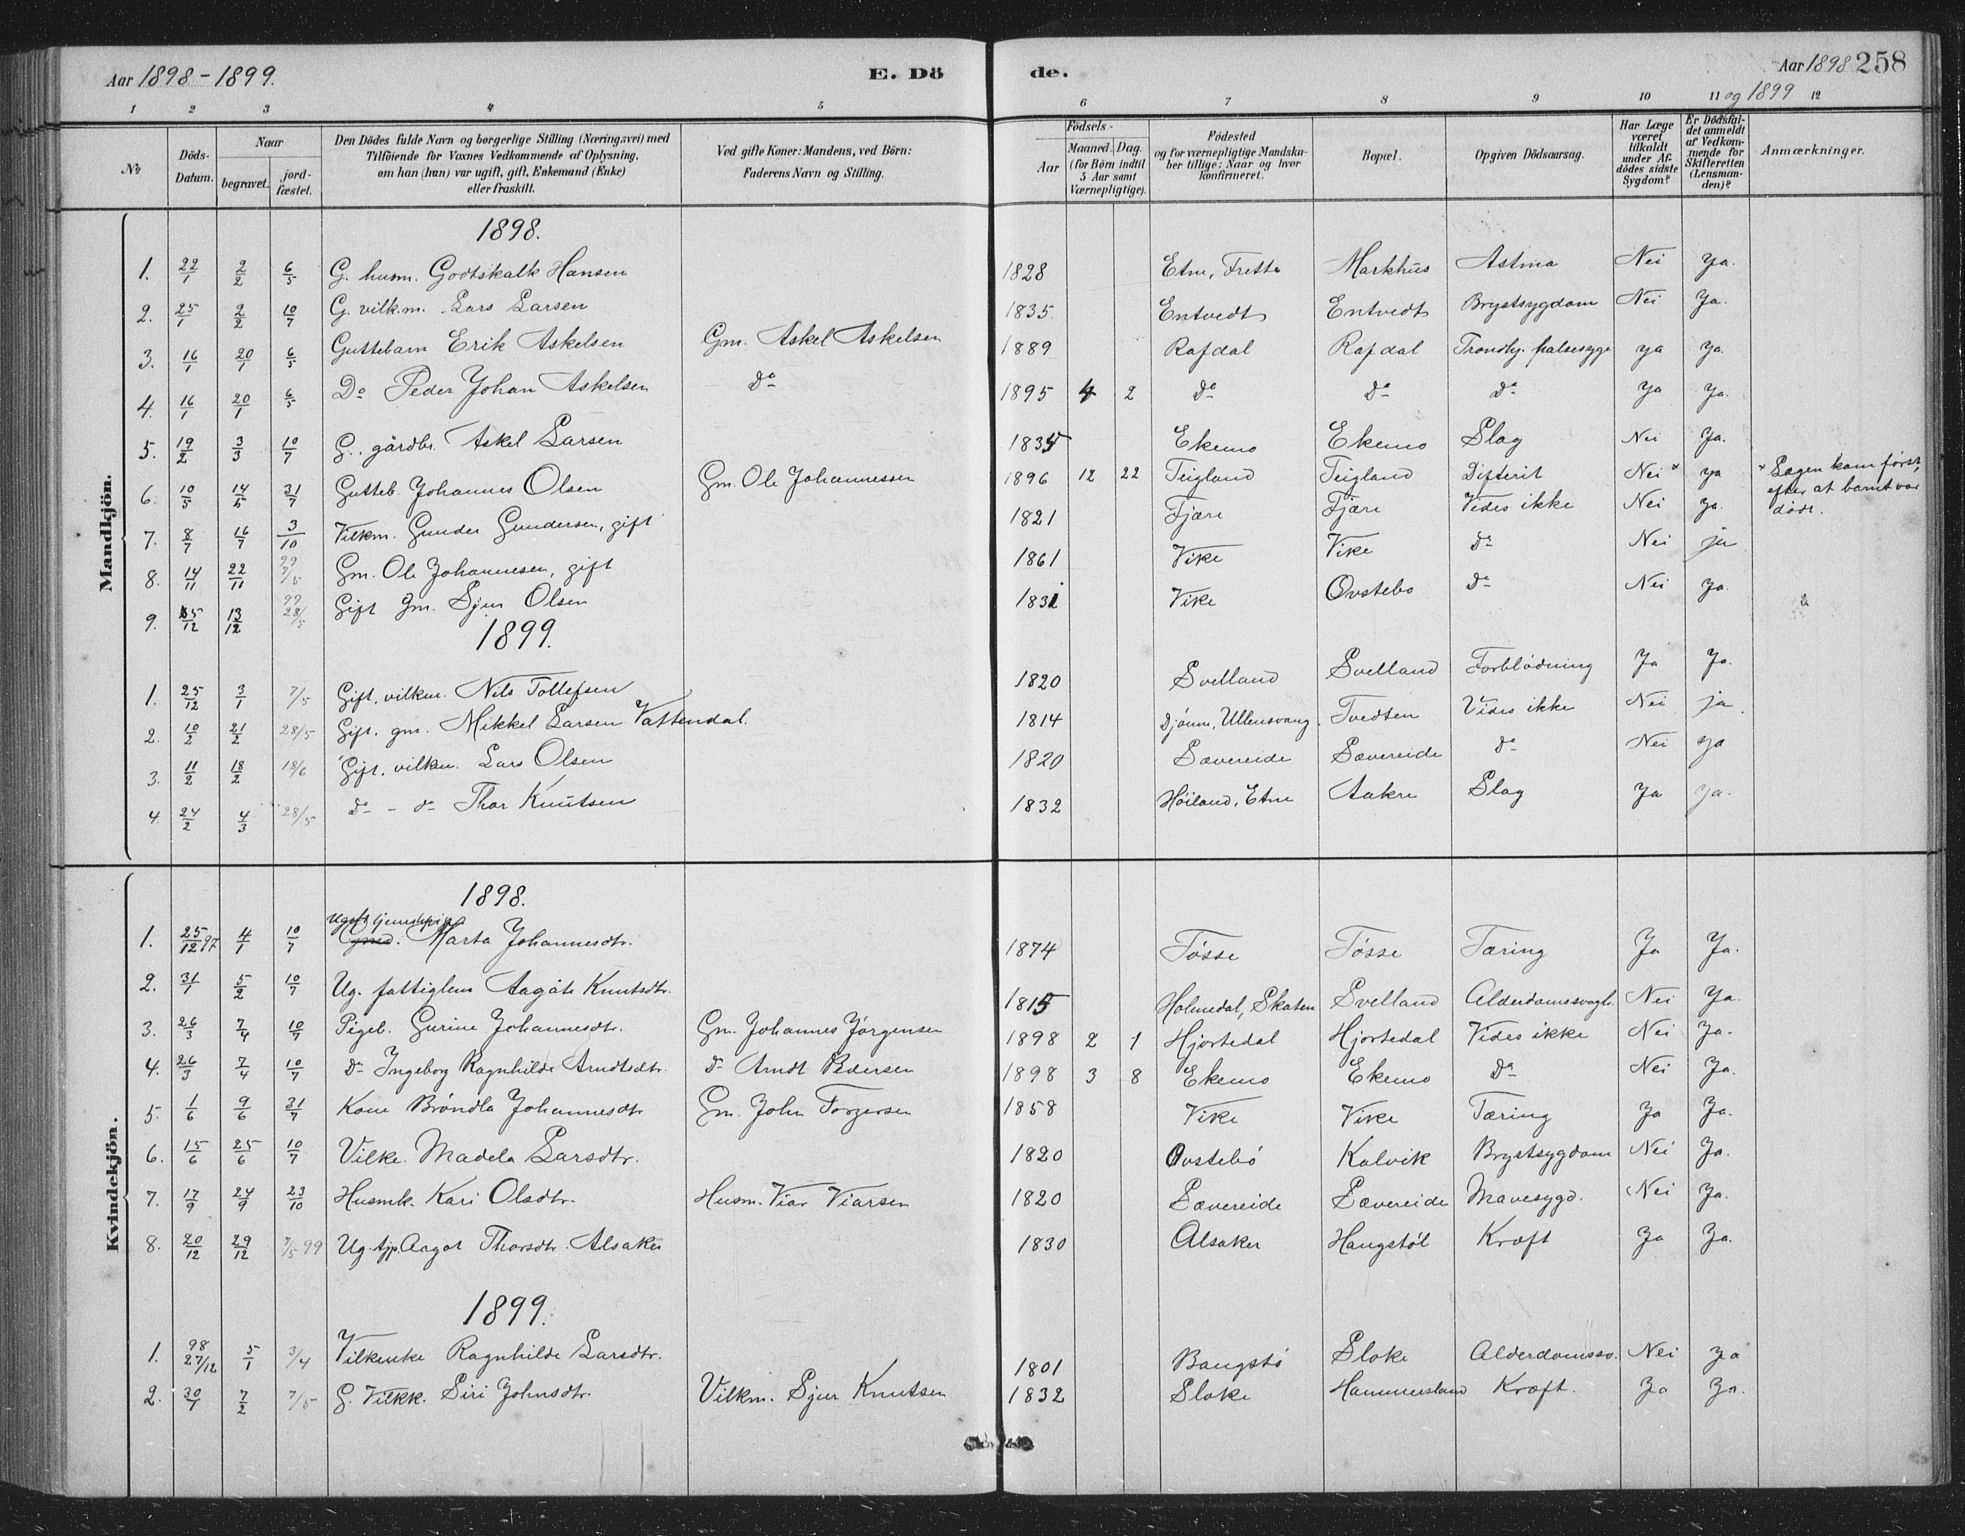 Aar 1898-1899. E. Dö de. Aar 1898 258
og 1899
1 2 3 4 5 6 7 8 9 10 11 12
No
Döds-Datum.
Naar begravet. jord-fæstet.
Den Dödes fulde Navn og borgerlige Stilling (Næringsvei) med Tilföiende for Voxnes Vedkommende af Oplysning, om han (hun) var ugift, gift, Enkemand (Enke) eller fraskilt.
Ved gifte Koner: Mandens, ved Börn: Faderens Navn og Stilling.
Födsels-
Aar Maaned. Dag. (for Börn indtil 5 Aar samt Værnepligtige).
Födested og for værnepligtige Mandskaber tillige: Naar og hvor konfirmeret.
Bopæl.
Opgiven Dödsaarsag.
Har Læge været tilkaldt under Afdödes sidste Sygdom?
Er Dödsfaldet anmeldt af Vedkommende for Skifteretten (Lensmanden)?
Anmærkninger.
Mandkjön.
1898.
1. 22/1 2/2 6/5 G. husm. Godtskalk Hansen 1828 Etne, Frette Markhus Astma Nei Ja.
2. 25/1 2/2 10/7 G. vilkm. Lars Larsen 1835 Entvedt Entvedt Brystsygdom Nei Ja.
3. 16/1 20/1 6/5 Guttebarn Erik Askelsen Gm. Askel Askelsen 1889 Rafdal Rafdal Trondhj. halssyge Ja Ja.
4. 16/1 20/1 6/5 Do Peder Johan Askelsen Do 1895 4 2 Do Do Do Ja Ja.
5. 19/2 3/3 10/7 G. gårdbr. Askel Larsen 1835 Ekemo Ekemo Slag Nei Ja.
6. 10/5 14/5 31/7 Gutteb. Johannes Olsen Gm. Ole Johannessen 1896 12 22 Teigland Teigland Difterit Nei * Ja * Lægen kom först, efter at barnet var dödt.
7. 8/7 16/7 3/10 Vilkm. Gunder Gundersen, gift 1821 Fjære Fjære Vides ikke Nei Ja.
8. 14/11 22/11 99 7/5 Gm. Ole Johannesen, gift 1861 Vike Vike Do Nei ja
9. 5/12 13/12 99 28/5 Gift gm. Sjur Olsen 1831 Vike Ovstebo Do Nei Ja.
1899.
1. 25/12 3/1 7/5 Gift, vilkm. Nils Tollefsen 1820 Svelland Svelland Forblödning Ja Ja.
2. 10/2 21/2 28/5 Gift, gm. Mikkel Larsen Vattendal. 1814 Djönne, Ullensvang. Tvedten Vides ikke Nei ja
3. 11/2 18/2 18/6 Gift, vilkm. Lars Olsen 1820 Sævereide Sævereide Do Nei Ja
4. 24/2 4/3 28/5 Do - do Thor Knutsen 1832 Höiland, Etne Aakre Slag Ja Ja.
Kvindekjön.
1898.
1. 25/12 97 4/1 10/7 Ugift tjenestepige Marta Johannesdtr. 1874 Tösse Tösse Tæring Ja Ja.
2. 31/1 5/2 10/7 Ug. fattiglem Aagåte Knutsdtr. 1815 Holmedal, Skaten Svelland Alderdomssvagh. Nei Ja.
3. 26/3 7/4 10/7 Pigeb. Gurine Johannesdtr. Gm. Johannes Jörgensen 1898 2 1 Hjortedal Hjortedal Vides ikke Nei Ja.
4. 26/3 7/4 10/7 Do Ingeborg Ragnhilde Arndtsdtr. Do Arndt Pedersen 1898 3 8 Ekemo Ekemo Do Nei Ja.
5. 1/6 9/6 31/7 Kone Bröndla Johannesdtr Gm. John Torgersen 1858 Vike Vike Tæring Ja Ja.
6. 15/6 25/6 10/7 Vilke. Madela Larsdtr. 1820 Ovstebö Kalvik Brystsygdom Nei Ja.
7. 17/9 24/9 23/10 Husmk. Kari Olsdtr. Husm. Viar Viarsen 1820 Sævereide Sævereide Mavesygd. Nei Ja.
8. 20/12 29/12 7/5 99 Ug. tjp. Aagot Thorsdtr. Alsaker 1830 Alsaker Haugstöl Kræft Ja Ja.
1899.
1. 98 27/12 5/1 3/4 Vilkenke Ragnhilde Larsdtr. 1801 Baugstö Sloke Alderdomssv. Nei Ja
2. 30/1 7/2 7/5 G. Vilkk. Siri Johnsdtr. Vilkm. Sjur Knutsen 1832 Sloke Hammersland Kræft. Ja Ja.